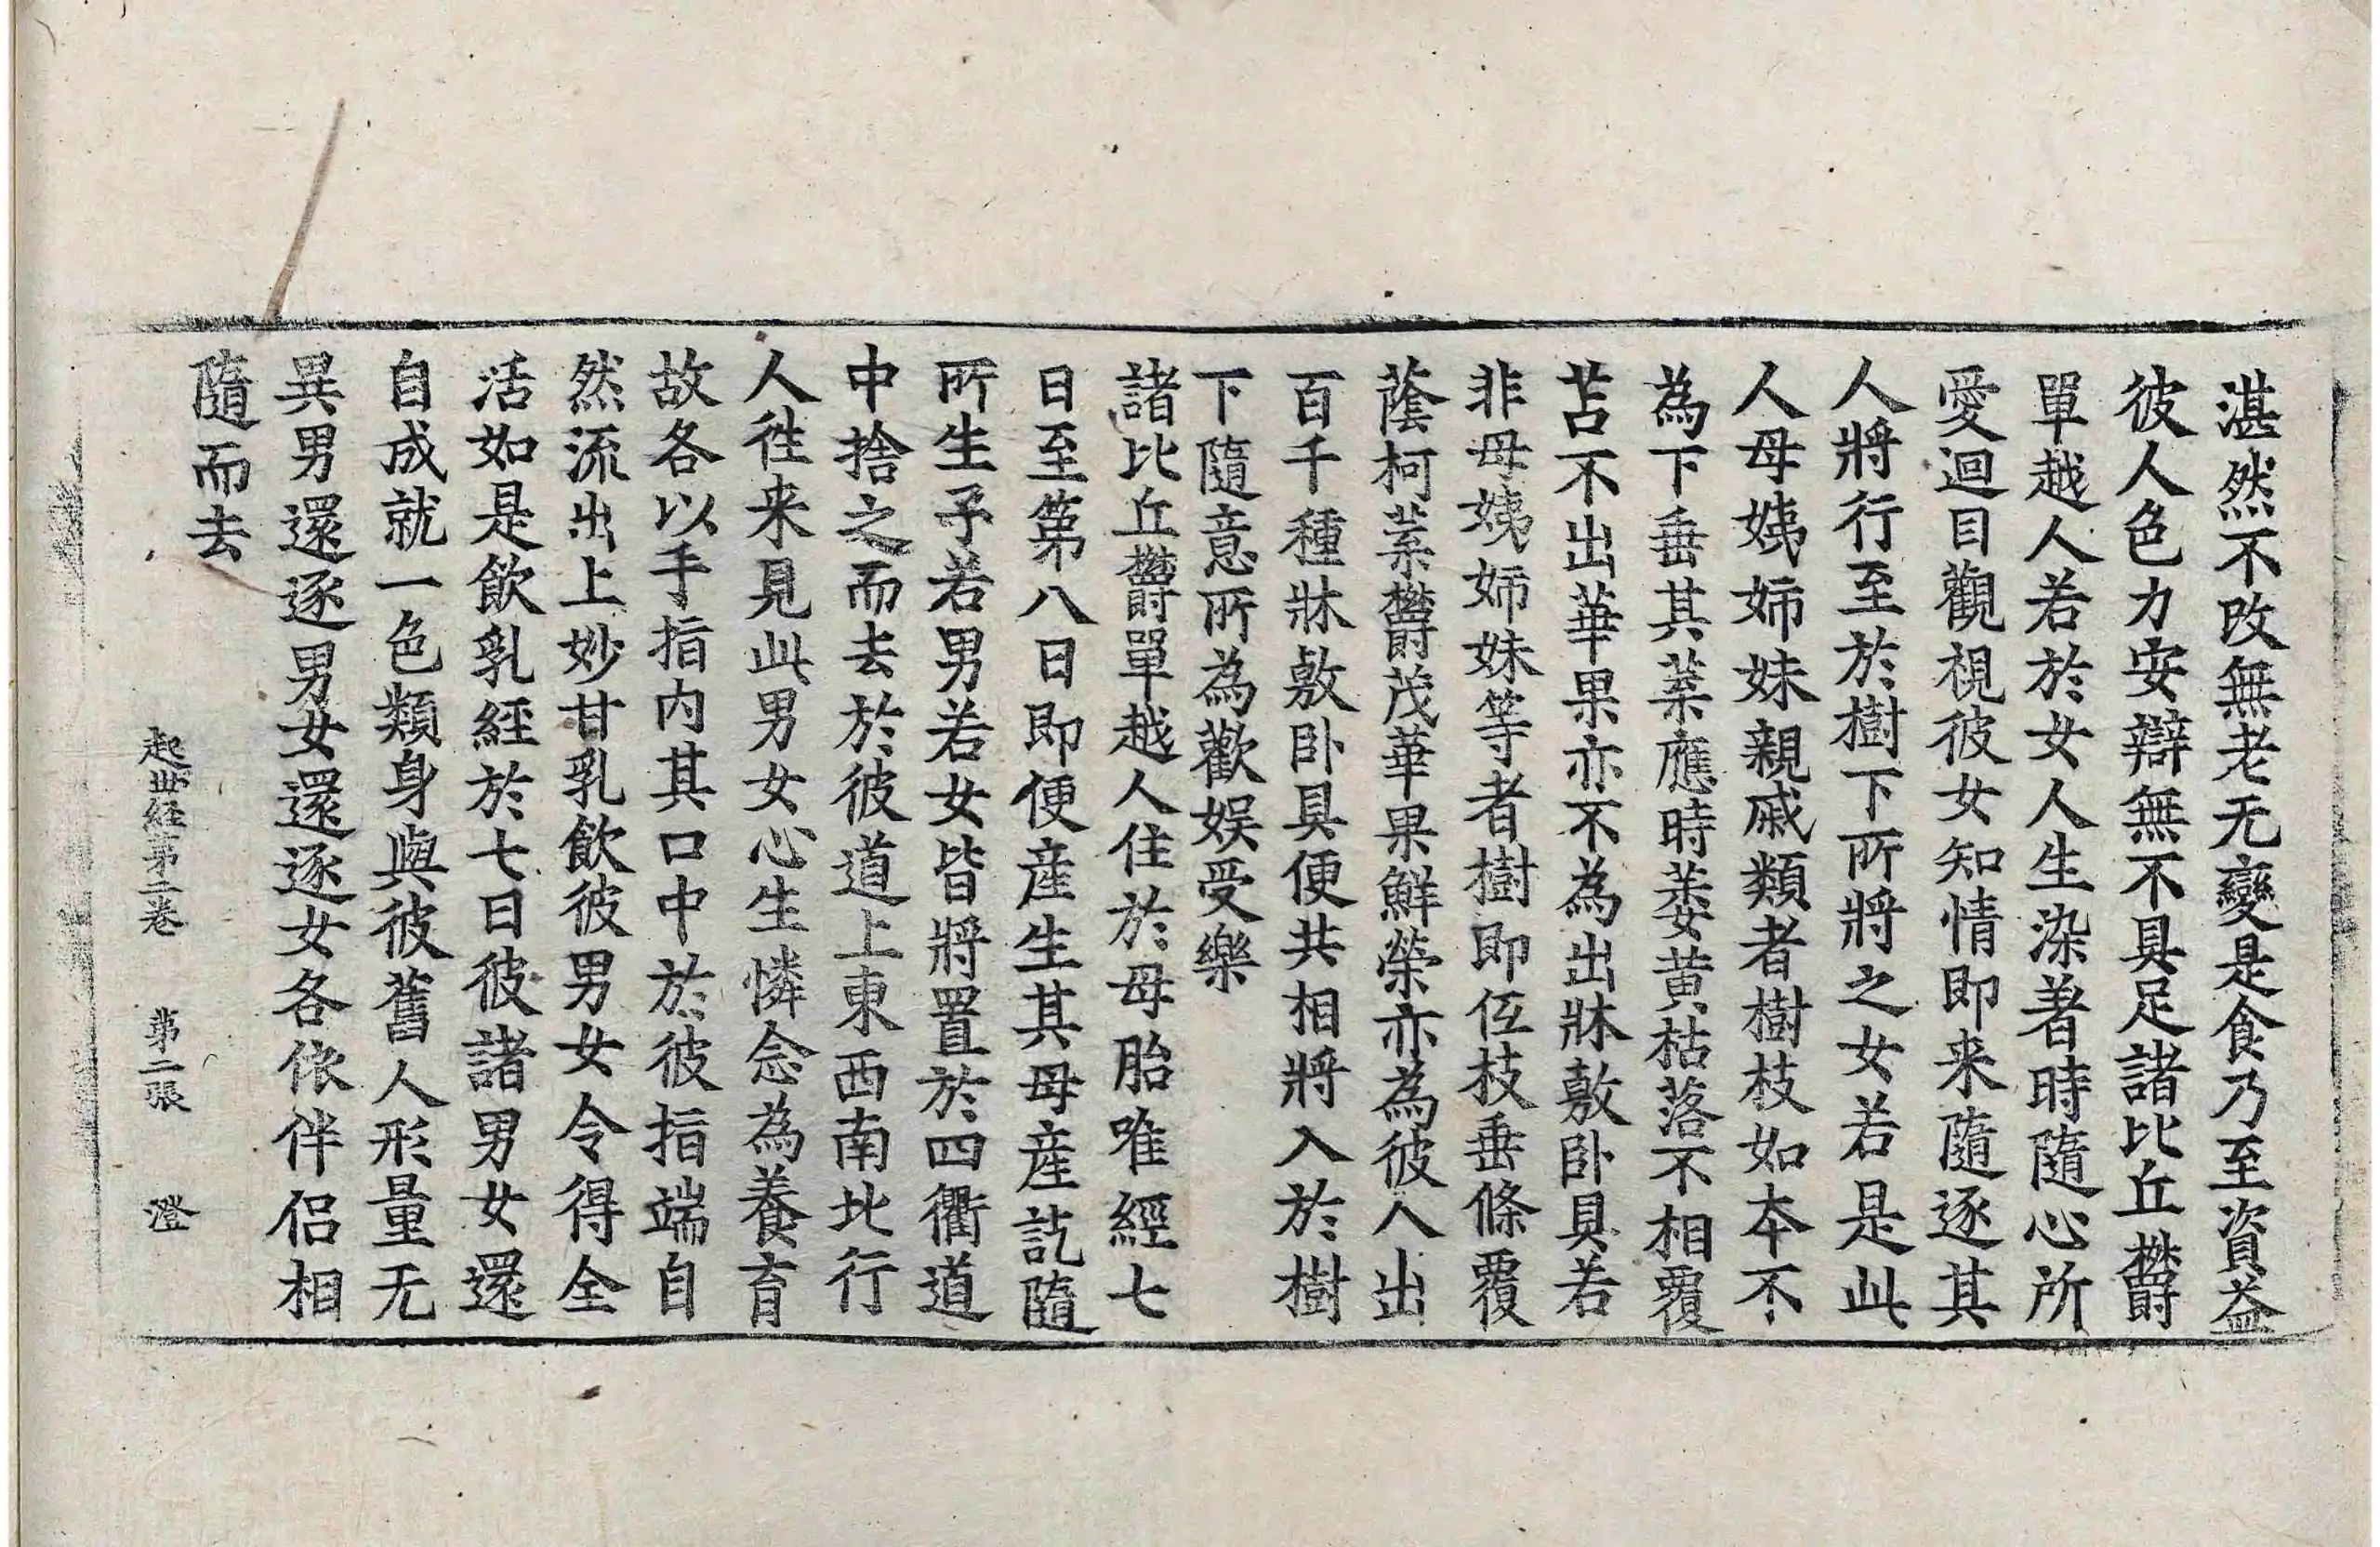 湛然不改無老无變是食乃至資益
彼人色力安辯無不具足諸比丘欝
單越人若於女人生染著時隨心所
愛迴目觀視彼女知情即来隨逐其
人將行至於樹下所將之女若是此
人母姨姉妹親戚類者樹枝如本不
為下垂其葉應時萎黄枯落不相覆
苫不出華果亦不為出牀敷卧具若
非母姨姉妹等者樹即伍枝垂條覆
蔭柯葉欝茂華果鮮榮亦為彼人出
百千種牀敷卧具便共相將入於樹
下隨意所為歡娱受樂
諸比丘欝單越人住於母胎唯經七
日至第八日即便産生其母産訖隨
所生子若男若女皆將置於四衢道
中捨之而去於彼道上東西南北行
人徃来見此男女心生憐念為養育
故各以手指内其口中於彼指端自
然流出上妙甘乳飲彼男女令得全
活如是飲乳經於七日彼諸男女還
自成就一色類身與彼舊人形量无
異男還逐男女還逐女各依伴侣相
隨而去
起世経第二卷 第二張 澄